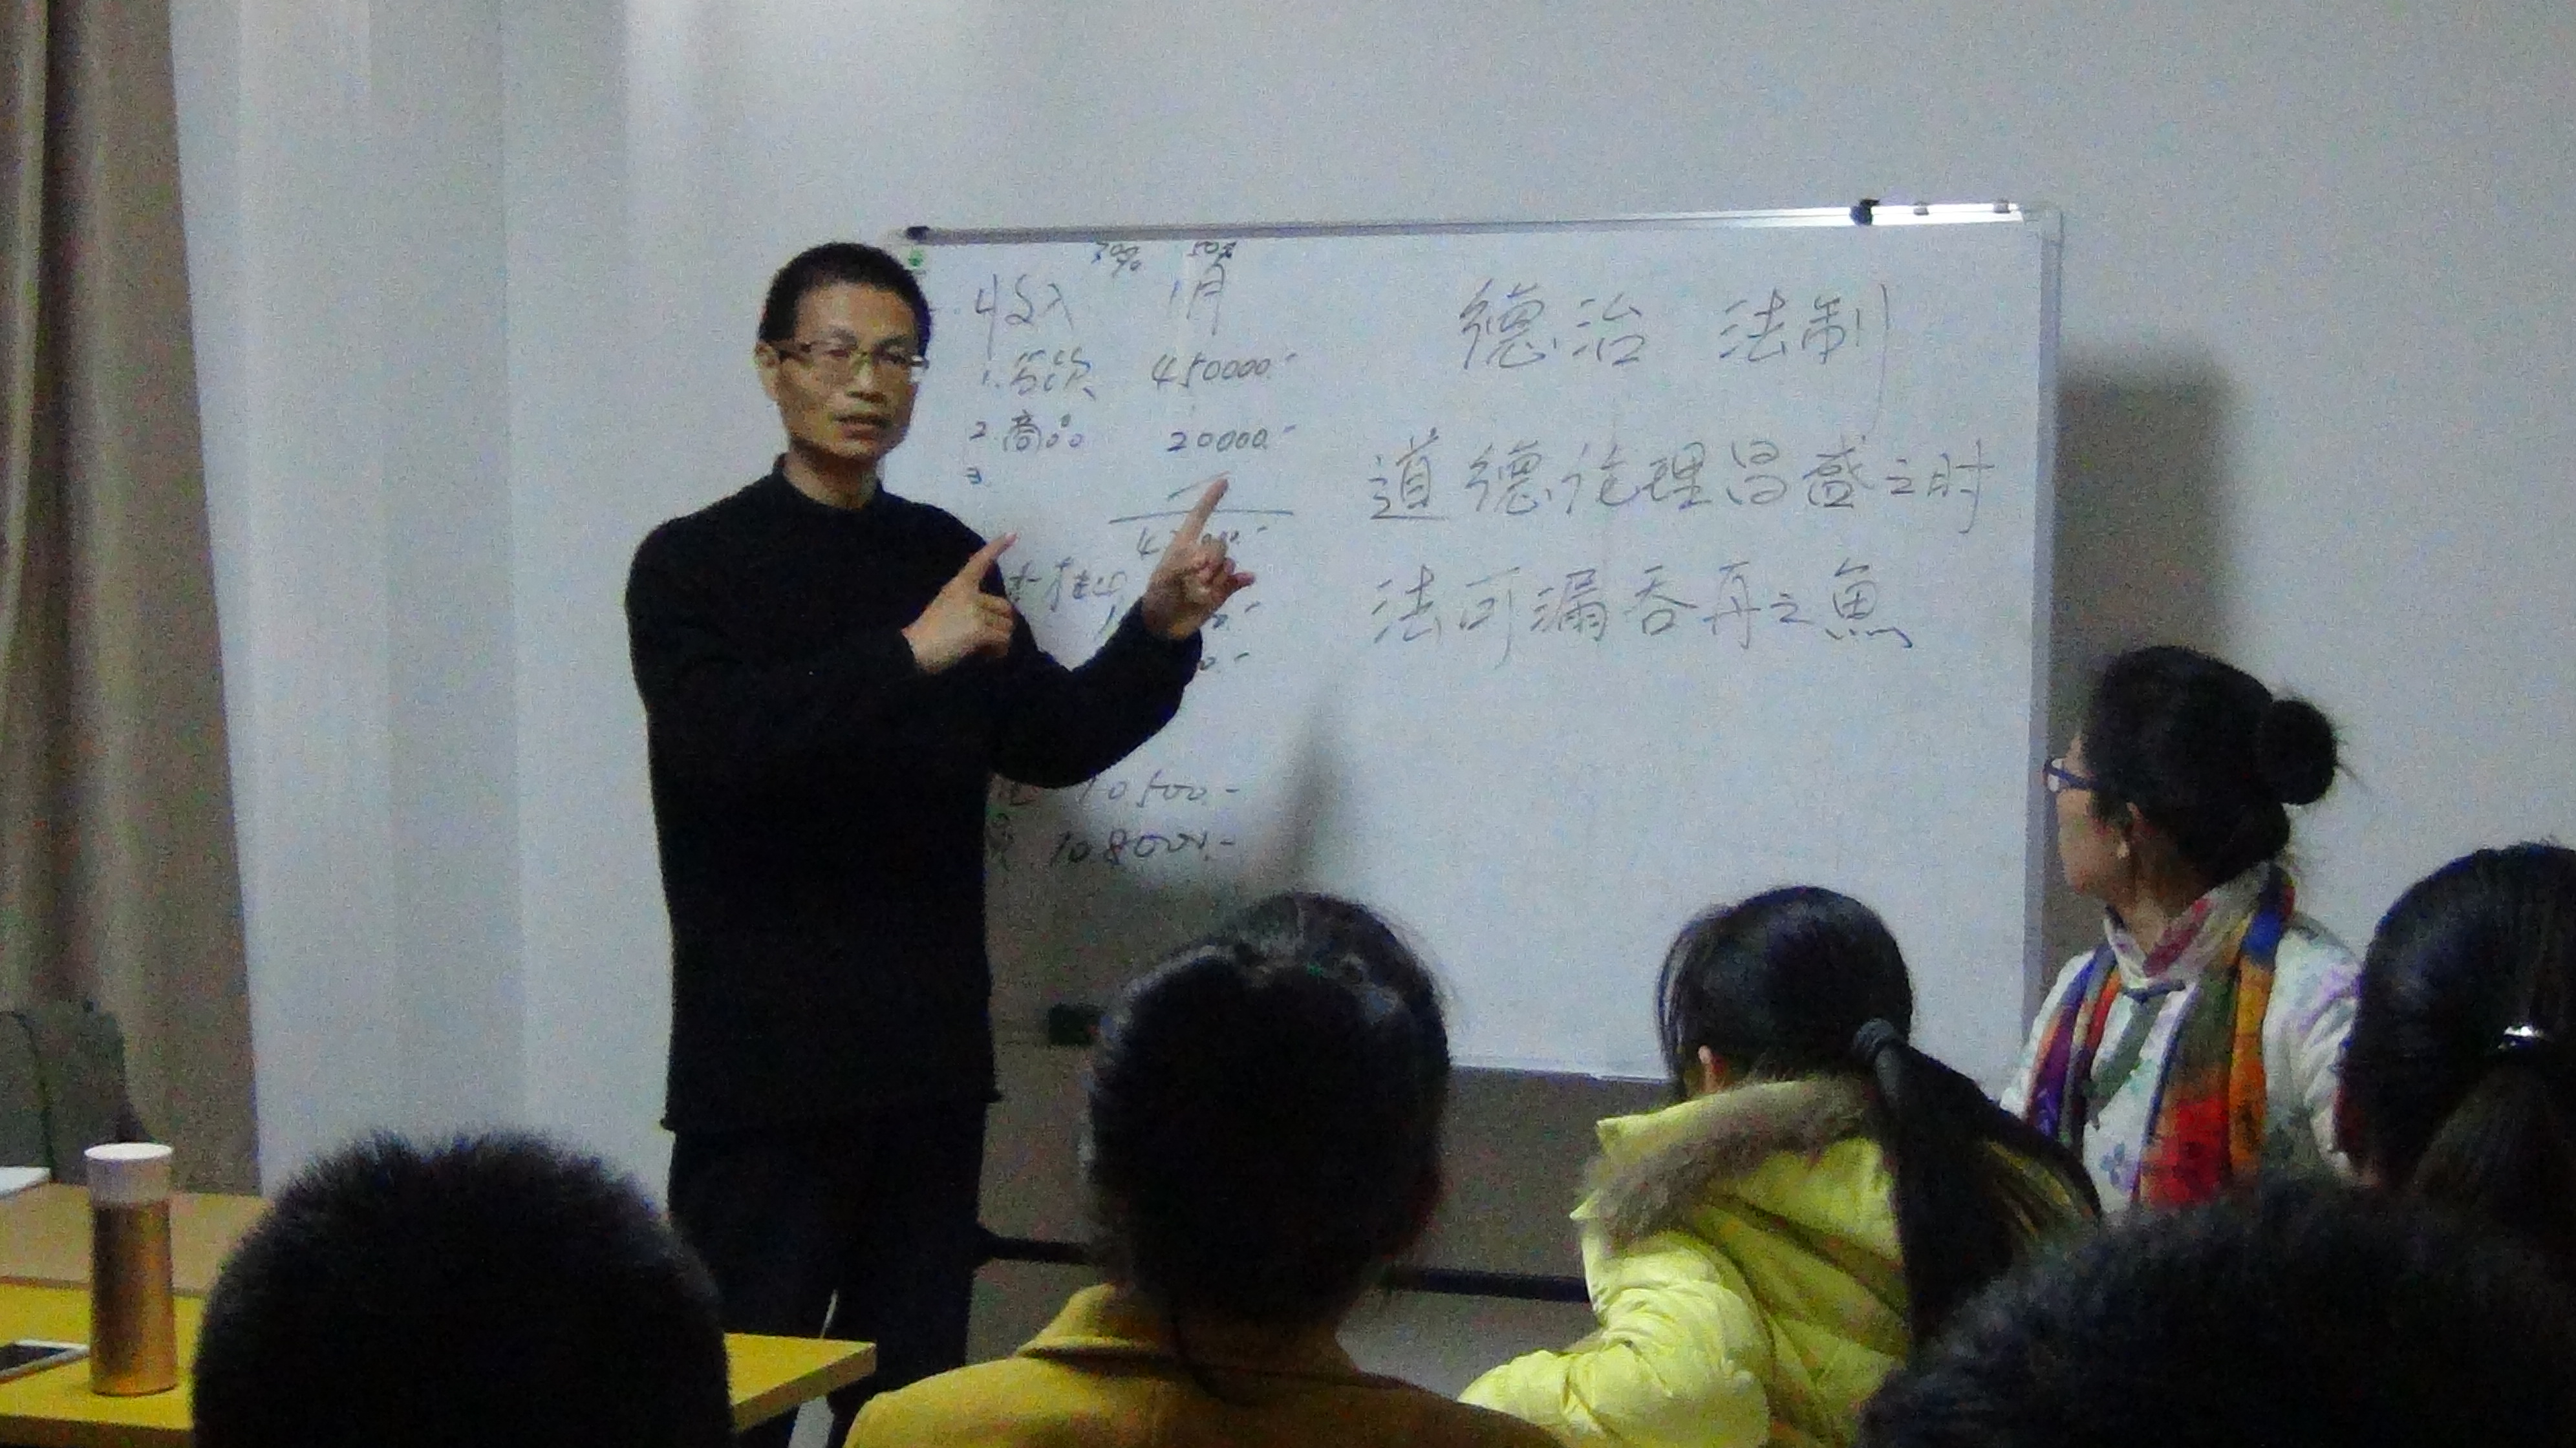 70% 50%
收入 1月
1. 货款 450000.-
2. 商品 20000.-
3
10500.-
10800.-
德治 法制
道德伦理昌盛之时
法可漏吞舟之鱼